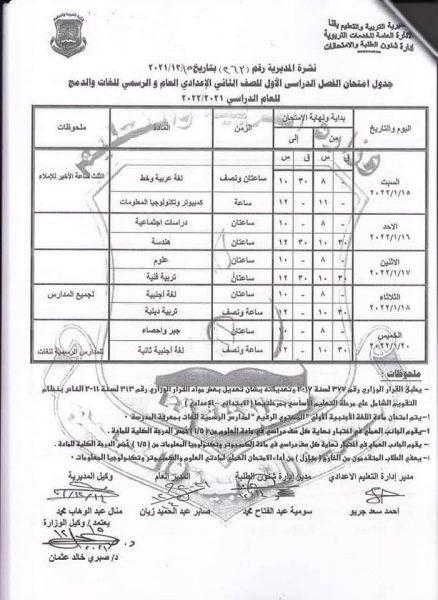 مديرية التربية والتعليم بقنا
الإدارة العامة للخدمات التربوية
إدارة شئون الطلبة والامتحانات
نشرة المديرية رقم (٢٦٢) بتاريخ ٢٠٢١/١٢/١٥
جدول امتحان الفصل الدراسى الأول للصف الثاني الإعدادي العام و الرسمي للغات والدمج
للعام الدراسي ٢٠٢٢/٢٠٢١
اليوم والتاريخ بداية ونهاية الإمتحان الزمن المادة ملحوظات
من إلى
ق س ق س
السبت ٢٠٢٢/١/١٥
- ٨ ٣٠ ١٠ ساعتان ونصف لغة عربية وخط الثلث ساعة الأخير للإملاء
- ١١ - ١٢ ساعة كمبيوتر وتكنولوجيا المعلومات
الاحد ٢٠٢٢/١/١٦
- ٨ - ١٠ ساعتان دراسات اجتماعية
٣٠ ١٠ ٣٠ ١٢ ساعتان هندسة
الاثنين ٢٠٢٢/١/١٧
- ٨ - ١٠ ساعتان علوم
٣٠ ١٠ ٣٠ ١٢ ساعتان تربية فنية
الثلاثاء ٢٠٢٢/١/١٨
- ٨ - ١٠ ساعتان لغة أجنبية لجميع المدارس
٣٠ ١٠ - ١٢ ساعة ونصف تربية دينية
الخميس ٢٠٢٢/١/٢٠
- ٨ - ١٠ ساعتان جبر واحصاء
٣٠ ١٠ - ١٢ ساعة ونصف لغة أجنبية ثانية للمدارس الرسمية للغات
ملحوظات
- يطبق القرار الوزاري رقم ٣٧٧ لسنة ٢٠١٧ وتعديلاته بشأن تعديل بعض مواد القرار الوزاري رقم ٣١٣ لسنة ٢٠١١ الصادر بنظام
التقويم الشامل علي مرحلة التعليم الأساسي بمرحلتيها (الابتدائي - الإعدادي)
- يتم امتحان مادة اللغة الأجنبية الأولي "المستوي الرفيع" لمدارس الرسمية للغات بمعرفة المدرسة
- يقوم الجانب العملي في اختبار نهاية كل صف دراسي في مادة العلوم من (١/٥) خمس الدرجة الكلية للمادة.
- يقوم الجانب العملي في اختبار نهاية كل صف دراسي في مادة الكمبيوتر وتكنولوجيا المعلومات من (١/٥) خمس الدرجة الكلية للمادة.
- يعفي الطلاب المتقدمين من الخارج (منازل) من أداء الامتحان العملي لمادتي العلوم والكمبيوتر وتكنولوجيا المعلومات
مدير إدارة التعليم الاعدادي مدير إدارة شئون الطلبة المدير العام وكيل المديرية
احمد سعد جريو سومية عبد الفتاح محمد صابر عبد الحميد زيان منال عبد الوهاب محمد
يعتمد / وكيل الوزارة
د/ صبري خالد عثمان